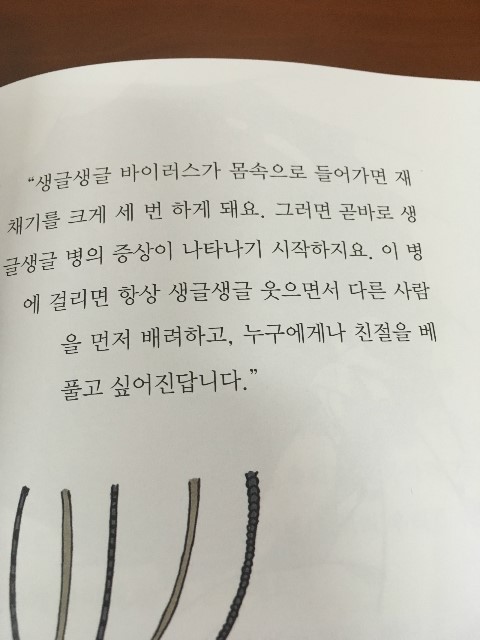 “생글생글 바이러스가 몸속으로 들어가면 재
채기를 크게 세 번 하게 돼요. 그러면 곧바로 생
글생글 병의 증상이 나타나기 시작하지요. 이 병
에 걸리면 항상 생글생글 웃으면서 다른 사람
을 먼저 배려하고, 누구에게나 친절을 베
풀고 싶어진답니다.”